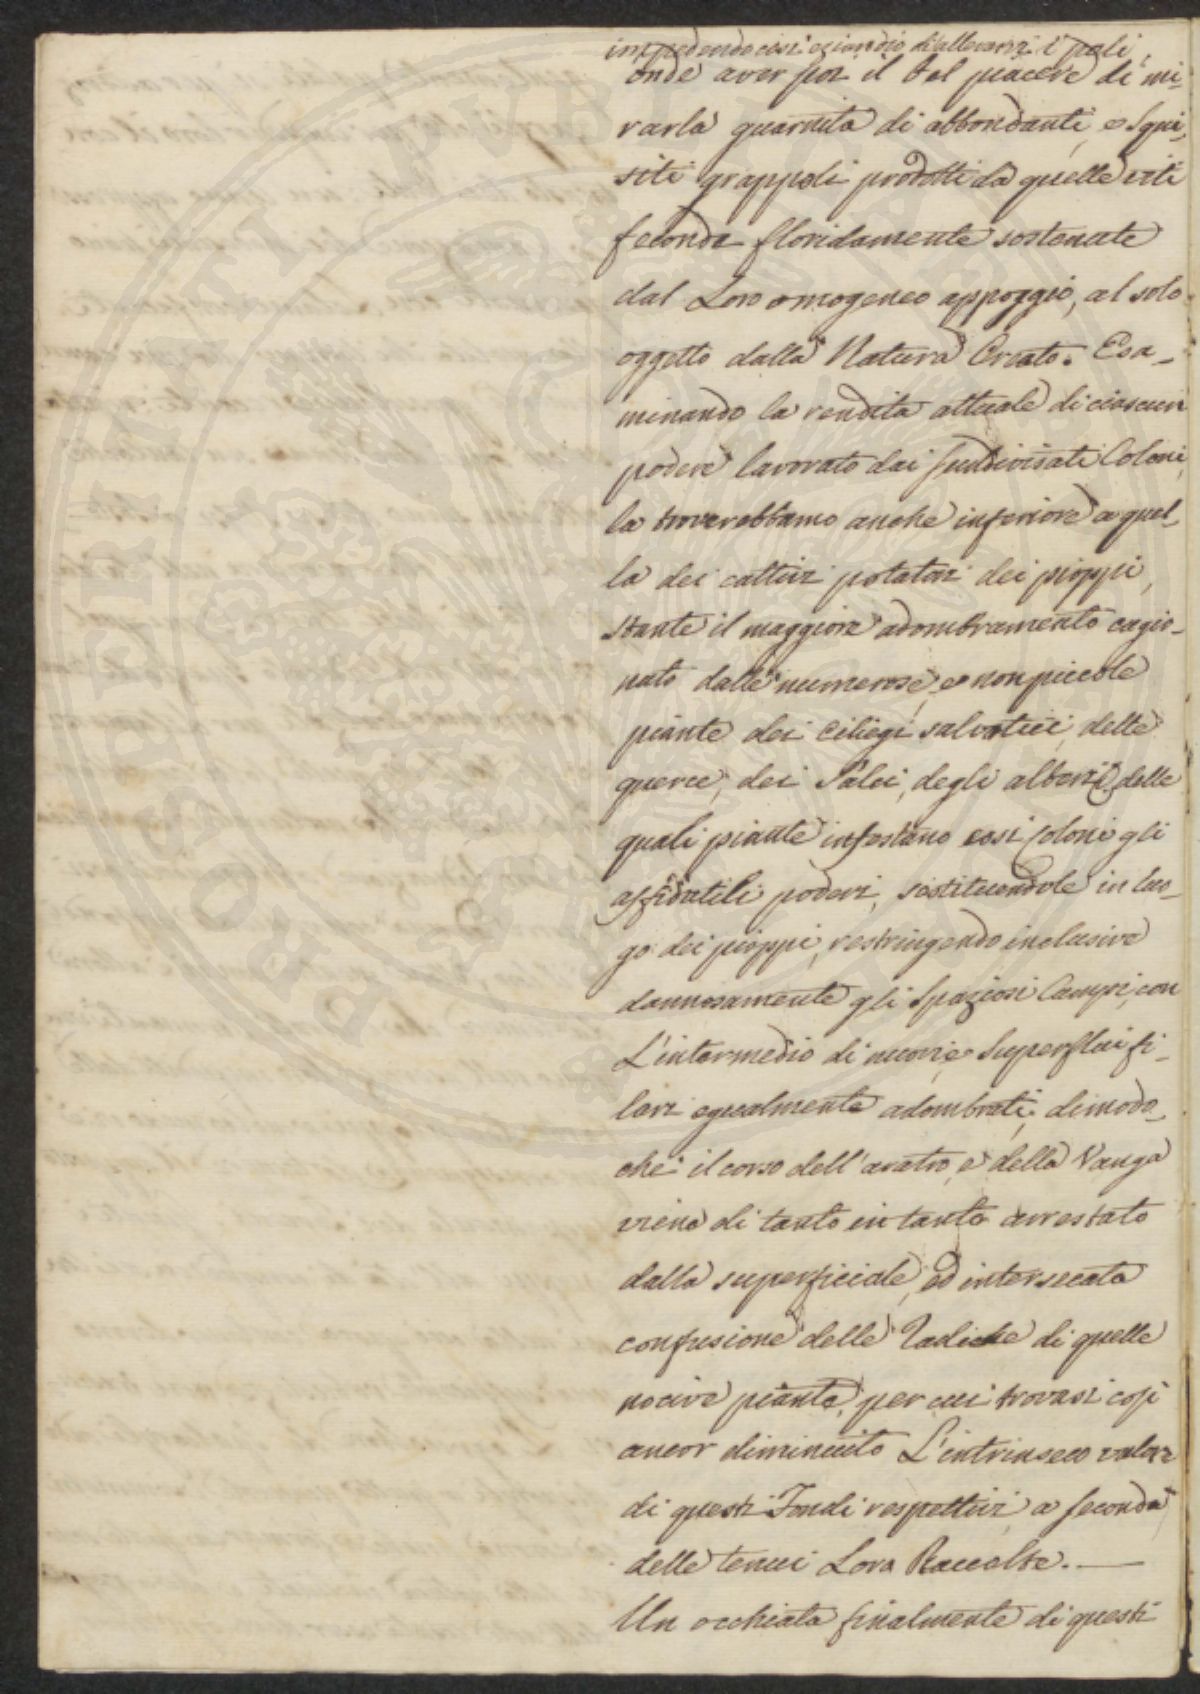 impedendo così eziandio di allevarsi i pali,
onde aver poi il bel piacere di mi-
rarla guarnita di abbondanti, e squi-
siti grappoli prodotti da quelle viti
feconde floridamente sostenute
dal Loro omogeneo appoggio, al solo
oggetto dalla Natura Creato. Esa-
minando la rendita attuale di ciascun
podere lavorato dai suddivisati Coloni,
la troverebbamo anche inferiore a quel-
la dei cattivi potatori dei pioppi,
stante il maggiore adombramento cagio-
nato dalle numerose, e non piccole
piante dei Ciliegi salvatici, delle
querce, dei Salci, degli alberi, delle
quali piante infestano così i Coloni gli
affidatili poderi, sostituendole in luo-
go dei pioppi, restringendo inclusive
dannosamente gli Spaziosi Campi, con
L'intermedio di nuovi, e Superflui fi-
lari egualmente adombrati; dimodo-
chè il corso dell'aratro, e della Vanga
viene di tanto in tanto arrestato
dalla superficiale, ed intersecata
confusione delle Radiche di quelle
nocive piante, per cui trovasi così
ancor diminuito L'intrinseco valore
di questi Fondi respettivi, a seconda
delle tenui Loro Raccolte. —
Un occhiata finalmente di questi
PROSPERITATI PUBLICAE